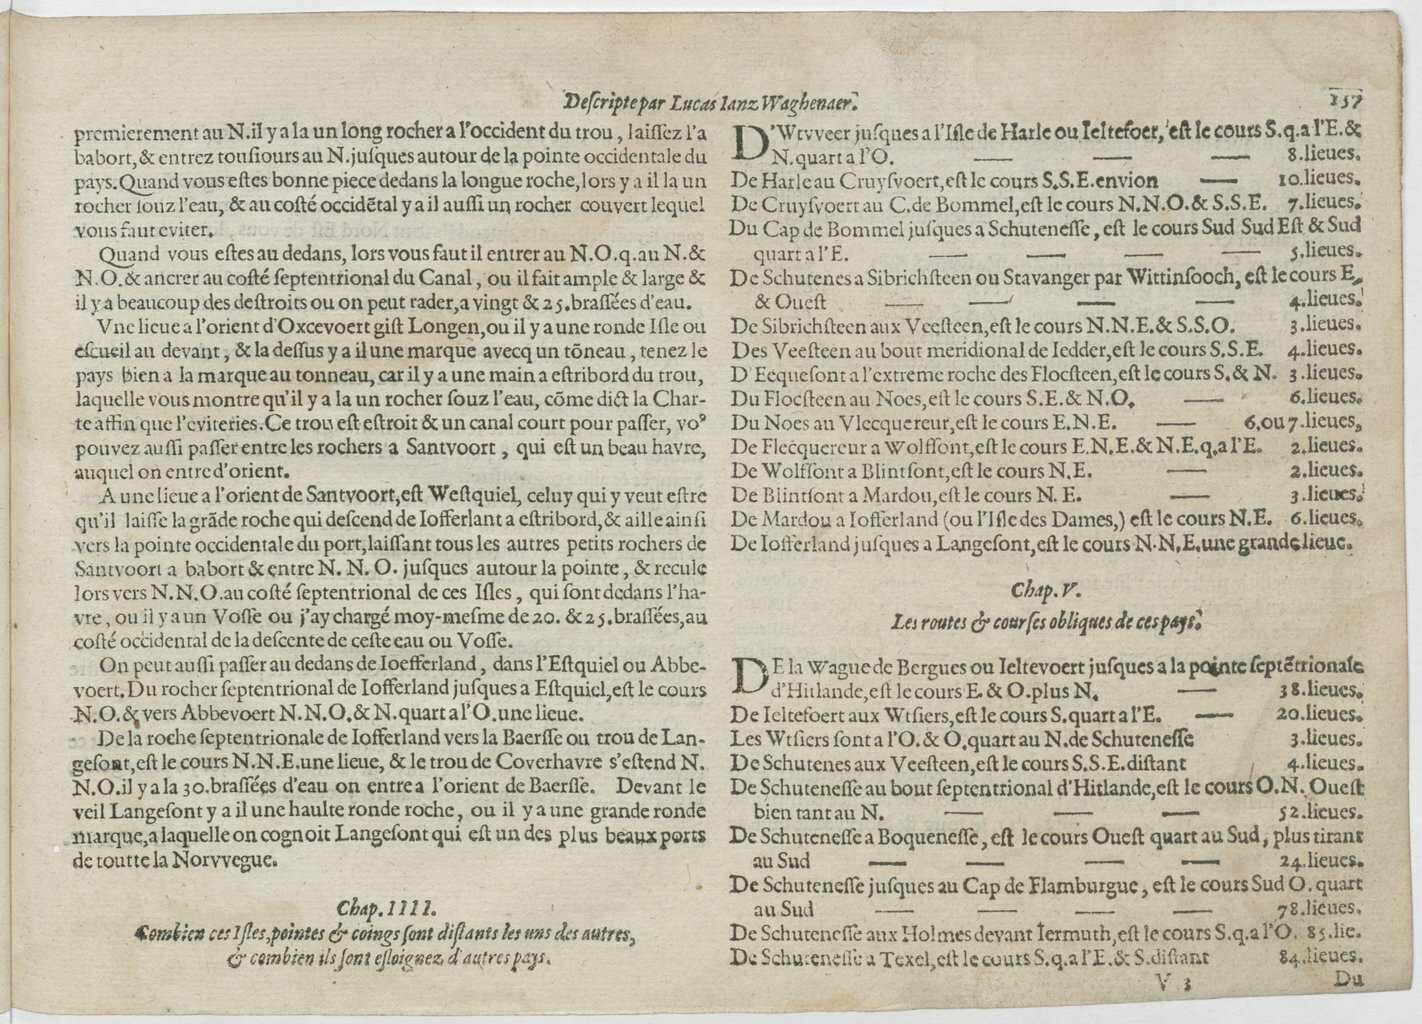 Descripte par Lucas Ianz Waghenaer.
157
premierement au N.il y a la un long rocher a l'occident du trou, laissez l'a
babort, & entrez tousiours au N. jusques autour de la pointe occidentale du
pays. Quand vous estes bonne piece dedans la longue roche, lors y a il la un
rocher souz l'eau, & au costé occidētal y a il aussi un rocher couvert lequel
vous faut eviter.
Quand vous estes au dedans, lors vous faut il entrer au N.O.q.au N.&
N.O.& ancrer au costé septentrional du Canal, ou il fait ample & large &
il y a beaucoup des destroits ou on peut rader, a vingt & 25.brassées d'eau.
Vne lieue a l'orient d'Oxcevoert gist Longen, ou il y a une ronde Isle ou
escueil au devant, & la dessus y a il une marque avecq un tōneau, tenez le
pays bien a la marque au tonneau, car il y a une main a estribord du trou,
laquelle vous montre qu'il y a la un rocher souz l'eau, cōme dict la Char-
te affin que l'eviteries. Ce trou est estroit & un canal court pour passer, vo⁹
pouvez aussi passer entre les rochers a Santvoort, qui est un beau havre,
auquel on entre d'orient.
A une lieue a l'orient de Santvoort, est Westquiel, celuy qui y veut estre
qu'il laisse la grāde roche qui descend de Iofferlant a estribord, & aille ainsi
vers la pointe occidentale du port, laissant tous les autres petits rochers de
Santvoort a babort & entre N. N. O. jusques autour la pointe, & recule
lors vers N.N.O.au costé septentrional de ces Isles, qui sont dedans l'ha-
vre, ou il y a un Vosse ou j'ay chargé moy-mesme de 20. & 25.brassées, au
costé occidental de la descente de ceste eau ou Vosse.
On peut aussi passer au dedans de Ioefferland, dans l'Estquiel ou Abbe-
voert. Du rocher septentrional de Iofferland jusques a Estquiel, est le cours
N.O.& vers Abbevoert N.N.O.& N.quart a l'O.une lieue.
De la roche septentrionale de Iofferland vers la Baersse ou trou de Lan-
gesont, est le cours N.N.E.une lieue, & le trou de Coverhavre s'estend N.
N.O.il y a la 30.brassées d'eau on entre a l'orient de Baersse. Devant le
veil Langesont y a il une haulte ronde roche, ou il y a une grande ronde
marque, a laquelle on cognoit Langesont qui est un des plus beaux ports
de toutte la Norvvegue.
Chap. IIII.
Combien ces Isles, pointes & coings sont distants les uns des autres,
& combien ils sont esloignez d'autres pays.
D'Wtvveer jusques a l'Isle de Harle ou Ieltefoer, est le cours S.q.a l'E.&
N.quart a l'O. — — — 8.lieues.
De Harle au Cruysvoert, est le cours S.S.E.envion — 10.lieues.
De Cruysvoert au C.de Bommel, est le cours N.N.O.& S.S.E. 7.lieues.
Du Cap de Bommel jusques a Schutenesse, est le cours Sud Sud Est & Sud
quart a l'E. — — — — 5.lieues.
De Schutenes a Sibrichsteen ou Stavanger par Wittinsooch, est le cours E.
& Ouest — — — — 4.lieues.
De Sibrichsteen aux Veesteen, est le cours N.N.E.& S.S.O. 3.lieues.
Des Veesteen au bout meridional de Iedder, est le cours S.S.E. 4.lieues.
D'Eequesont a l'extreme roche des Flocsteen, est le cours S.& N. 3.lieues.
Du Flocsteen au Noes, est le cours S.E.& N.O. — 6.lieues.
Du Noes au Vlecquereur, est le cours E.N.E. — 6,ou 7.lieues,
De Flecquereur a Wolffont, est le cours E.N.E.& N.E.q.a l'E. 2.lieues.
De Wolfsont a Blintsont, est le cours N.E. — 2.lieues.
De Blintsont a Mardou, est le cours N. E. — 3.lieues.
De Mardou a Iofferland (ou l'Isle des Dames,) est le cours N.E. 6.lieues.
De Iofferland jusques a Langesont, est le cours N.N.E.une grande lieue.
Chap. V.
Les routes & courses obliques de ces pays.
DE la Wague de Bergues ou Ieltevoert jusques a la pointe septētrionale
d'Hitlande, est le cours E.& O.plus N. — 38.lieues.
De Ieltefoert aux Wtsiers, est le cours S.quart a l'E. — 20.lieues.
Les Wtsiers sont a l'O.& O.quart au N.de Schutenesse 3.lieues.
De Schutenes aux Veesteen, est le cours S.S.E.distant 4.lieues.
De Schutenesse au bout septentrional d'Hitlande, est le cours O.N. Ouest
bien tant au N. — — — 52.lieues.
De Schutenesse a Boquenesse, est le cours Ouest quart au Sud, plus tirant
au Sud — — — — 24.lieues.
De Schutenesse jusques au Cap de Flamburgue, est le cours Sud O. quart
au Sud — — — — 78.lieues.
De Schutenesse aux Holmes devant Iermuth, est le cours S.q.a l'O. 85.lie.
De Schutenesse a Texel, est le cours S.q.a l'E.& S.distant 84.lieues.
V 3
Du